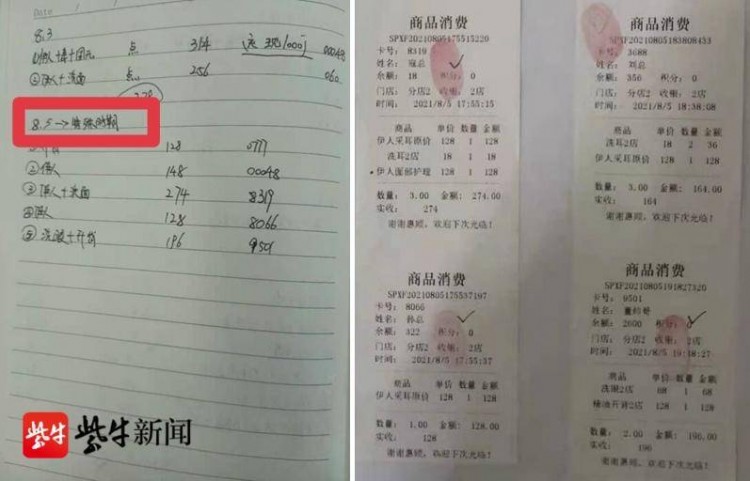 Date
8.3
点
314
00048
256
060
8.5→
128
0777
148
00048
274
8319
128
8066
196
9501
紫牛 紫牛新闻
商品消费
SPXF20210805175515220
卡号： 8319
姓名： 寇总
余额： 18 积分： 0
门店： 分店2 收银： 2店
时间： 2021/8/5 17:55:15
商品 单价 数量 金额
伊人采耳原价 128 1 128
洗耳2店 18 1 18
伊人面部护理 128 1 128
数量： 3.00 金额： 274.00
实收： 274
谢谢惠顾，欢迎下次光临！
商品消费
SPXF20210805175537197
卡号： 8066
姓名： 孙总
余额： 322 积分： 0
门店： 分店2 收银： 2店
时间： 2021/8/5 17:55:37
商品 单价 数量 金额
伊人采耳原价 128 1 128
数量： 1.00 金额： 128.00
实收： 128
谢谢惠顾，欢迎下次光临！
商品消费
SPXF20210805183808453
卡号： 3688
姓名： 刘总
余额： 356 积分： 0
门店： 分店2 收银： 2店
时间： 2021/8/5 18:38:08
商品 单价 数量 金额
洗耳2店 18 2 36
伊人采耳原价 128 1 128
数量： 3.00 金额： 164.00
实收： 164
谢谢惠顾，欢迎下次光临！
商品消费
SPXF20210805191827320
卡号： 9501
余额： 2600 积分：
门店： 分店2 收银： 2店
时间： 2021/8/5
商品 单价 数量 金额
128 1 128
数量： 2.00 金额： 196.00
实收： 196
谢谢惠顾，欢迎下次光临！